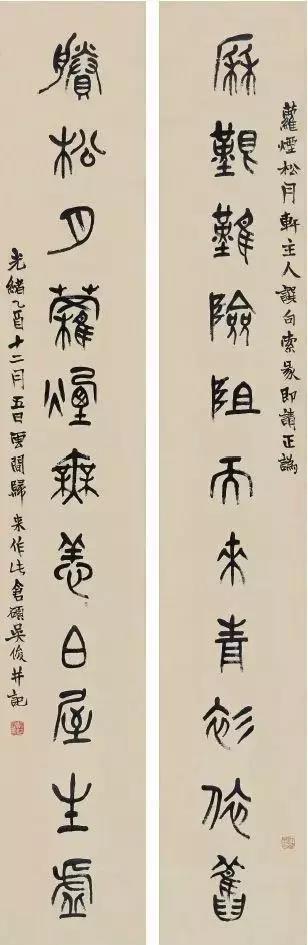 蘿煙松月軒主人譔句索篆即請正謬
厤艱難險阻而來青衫依舊
賸松月蘿煙無恙白屋生虛
光緒乙酉十二月五日雲間歸来作此倉碩吳俊并記